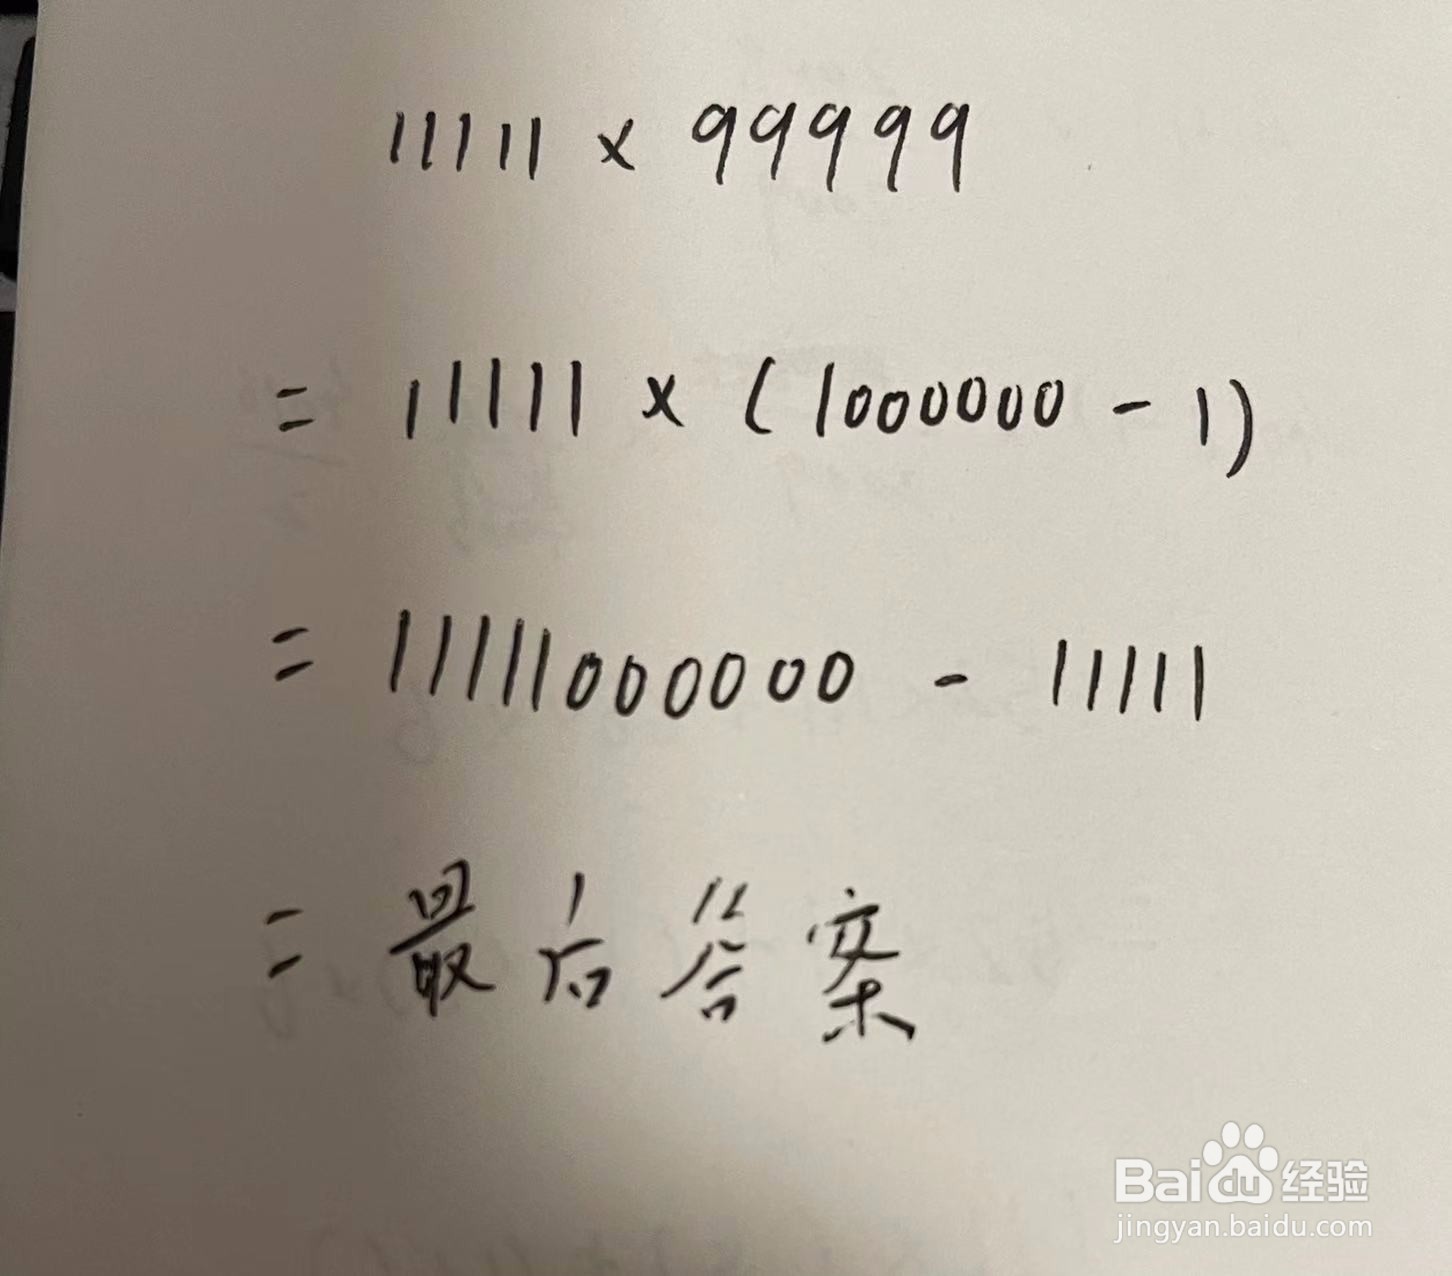 11111 × 99999
= 11111 × (1000000 - 1)
= 11111000000 - 11111
= 最后答案
Baidu 经验
jingyan.baidu.com